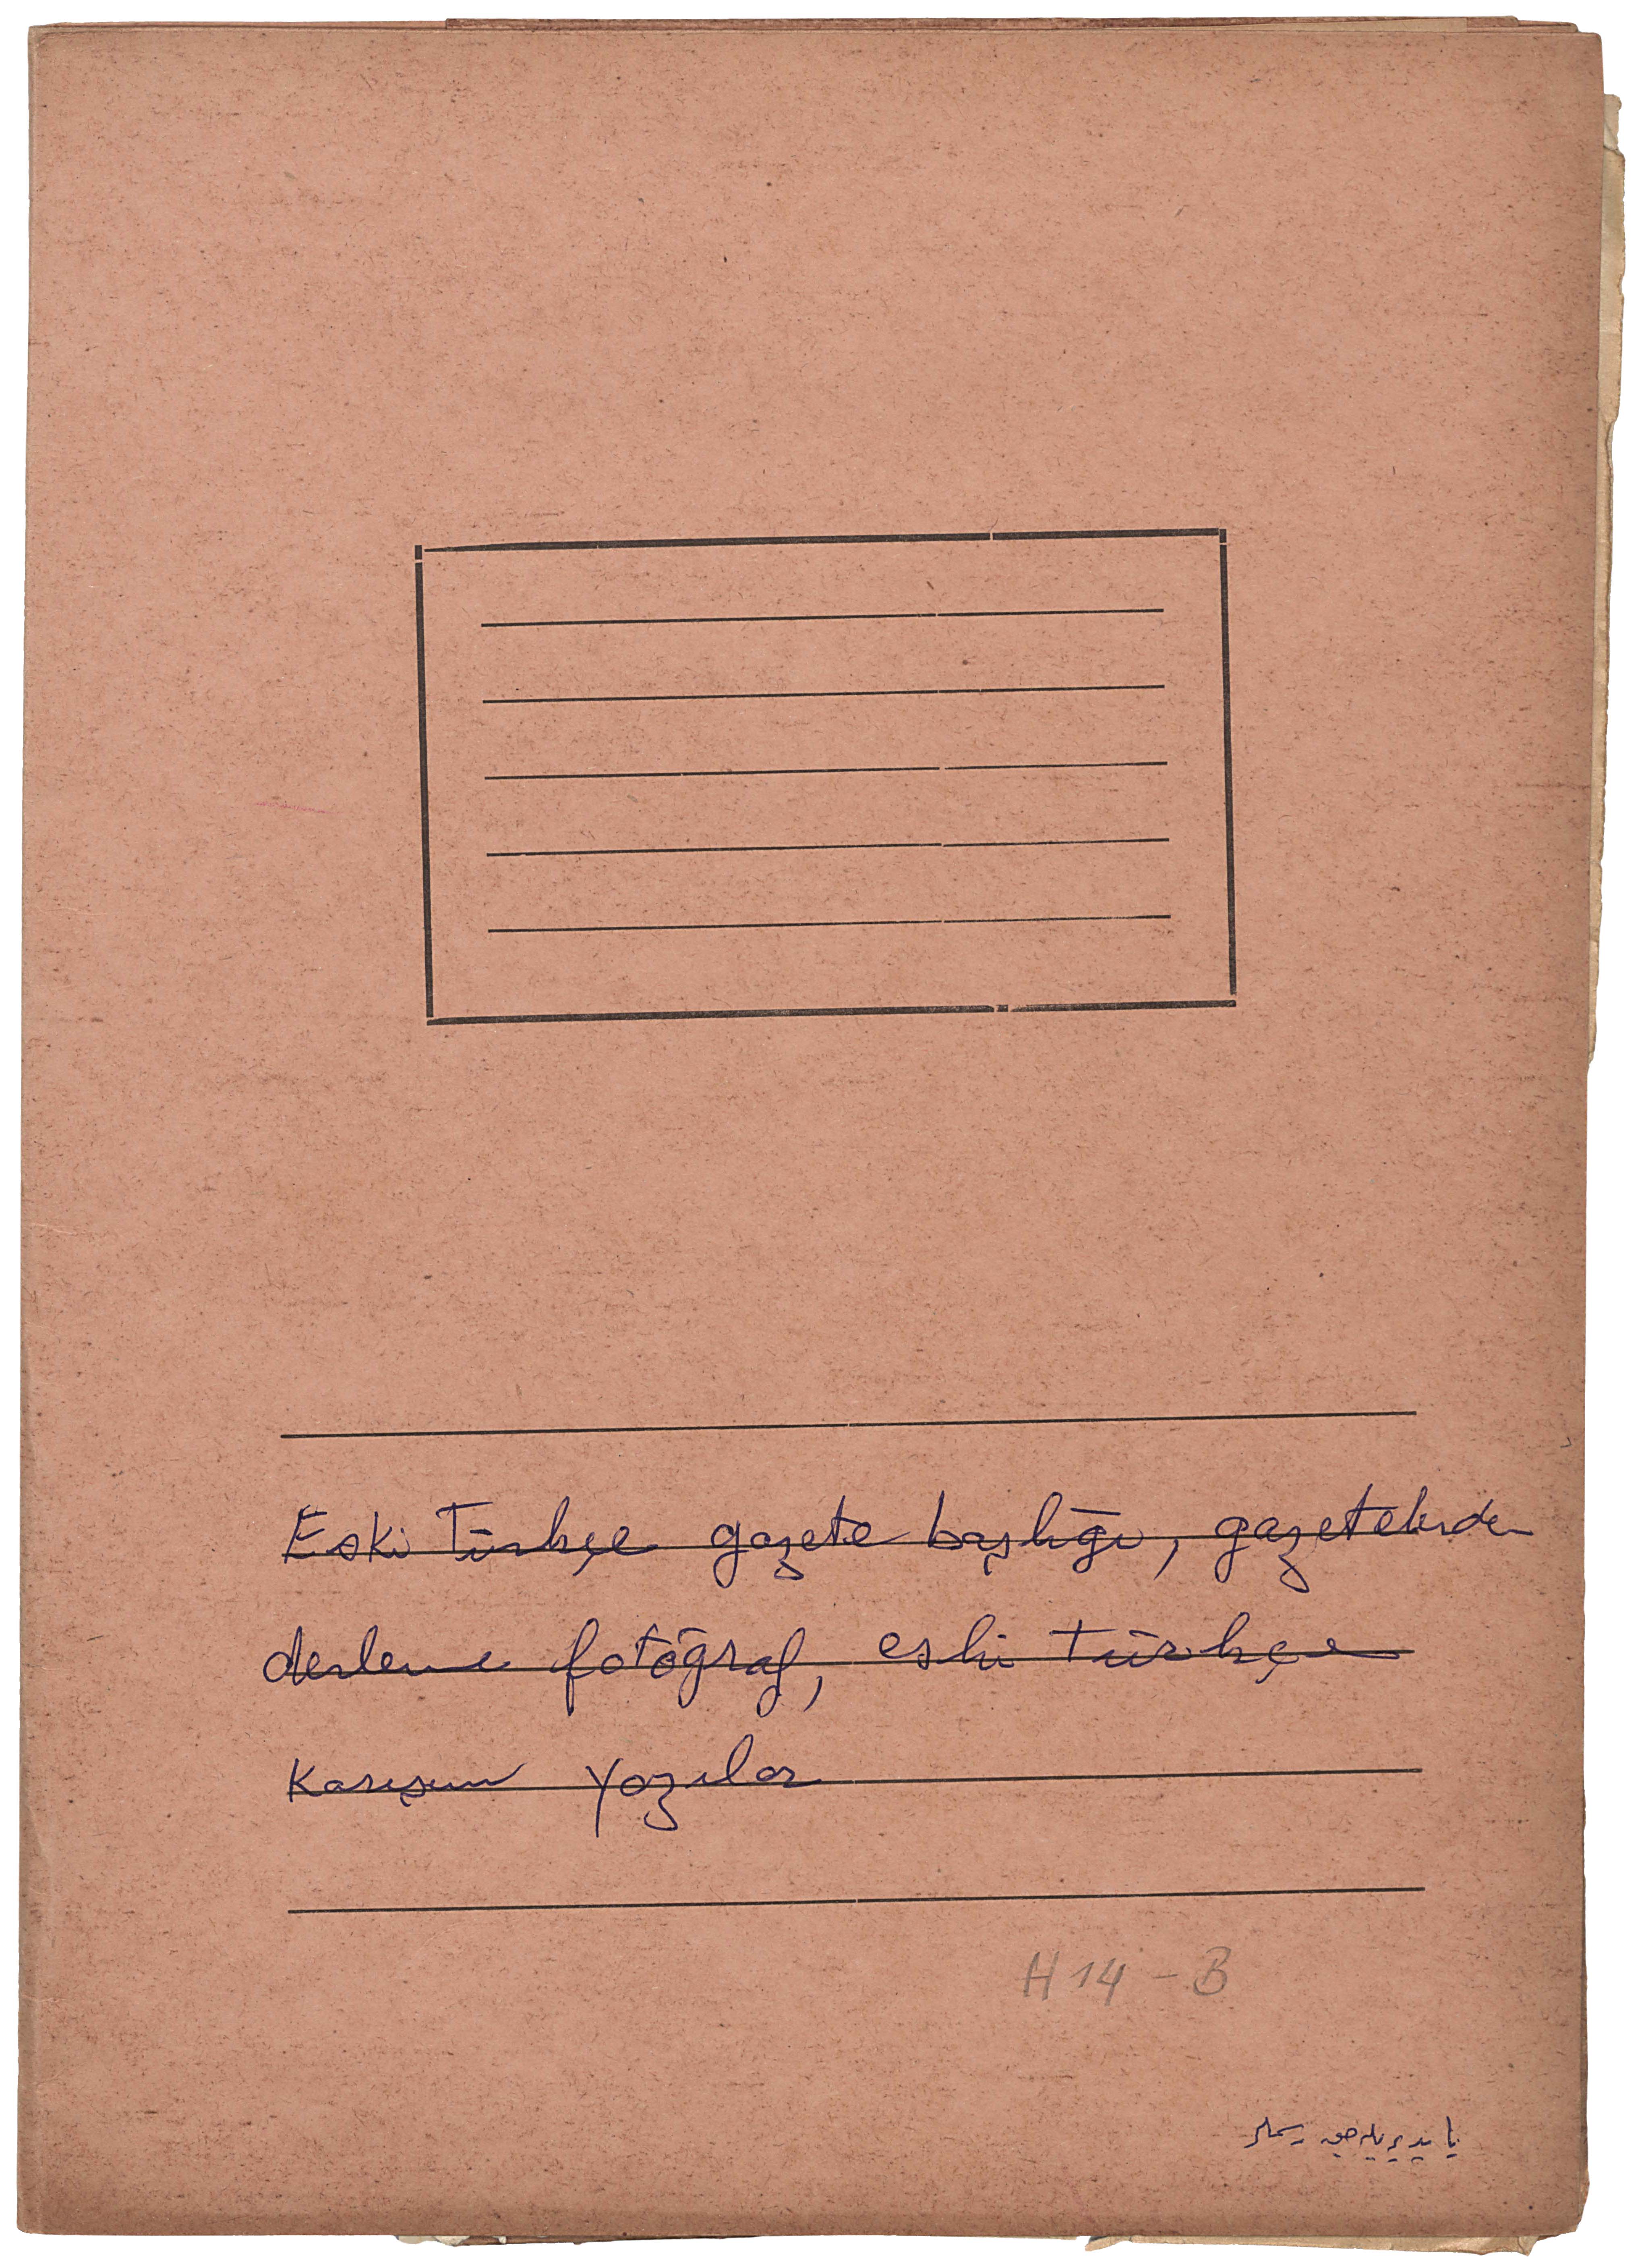 Eski Türkçe gazete başlığı, gazetelerden
derleme fotoğraf, eski türkçe
Karışım yazılar
H 14 - B